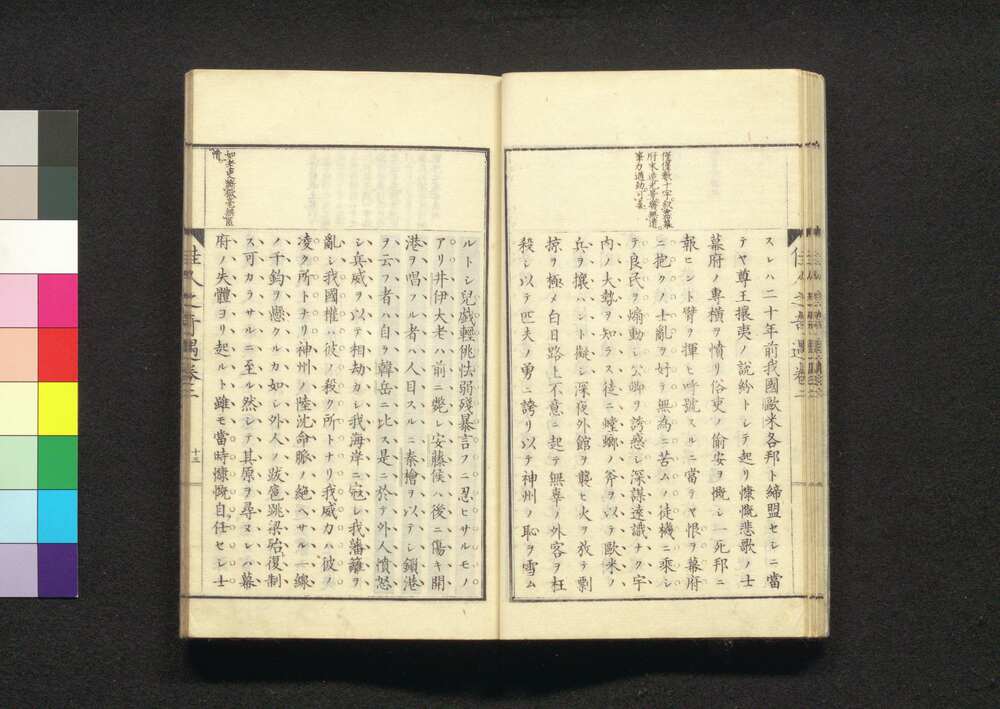 僅僅數十字叙舊幕
府末造光景
筆力遒勁可喜
スレハ二十年前我國歐米各邦ト締盟セシニ當
テヤ尊王攘夷ノ說紛トシテ起リ慷慨悲歌ノ士
幕府ノ專橫ヲ憤リ俗吏ノ偷安ヲ慨シ一死邦ニ
報ヒント臂ヲ揮ヒ呼號スルニ當テヤ恨ヲ幕府
ニ抱クノ士亂ヲ好テ無為ニ苦ムノ徒機ニ乘シ
テ良民ヲ煽動シ公卿ヲ誘惑シ深謀遠識ナク宇
內ノ大勢ヲ知ラス徒ニ螳螂ノ斧ヲ以テ歐米ノ
兵ヲ攘ハント擬シ深夜外館ヲ襲ヒ火ヲ放テ剽
掠ヲ極メ白日路上不意ニ起テ無辜ノ外客ヲ枉
殺シ以テ匹夫ノ勇ニ誇リ以テ神州ノ恥ヲ雪ム
佳人之奇遇卷二
ルトシ兒戲輕佻怯弱殘暴言フニ忍ヒサルモノ
アリ井伊大老ハ前ニ斃レ安藤侯ハ後ニ傷キ開
港ヲ唱フル者ハ人目スルニ秦檜ヲ以テシ鎖港
ヲ云フ者ハ自ヲ韓岳ニ比ス是ニ於テ外人憤怒
シ兵威ヲ以テ相劫カシ我海岸ニ寇シ我藩籬ヲ
亂シ我國權ハ彼ノ殺ク所トナリ我威力ハ彼ノ
凌ク所トナリ神州ノ陸沈命脈ノ絕ヘサル一線
ノ千鈞ヲ懸クルカ如シ外人ノ跋扈跳梁殆復制
ス可カラサルニ至ル然シテ其原ヲ尋ヌレハ幕
府ノ失體ヨリ起ルト雖モ當時慷慨自任セシ士
如老吏斷獄
情
佳人之奇遇卷二
十三